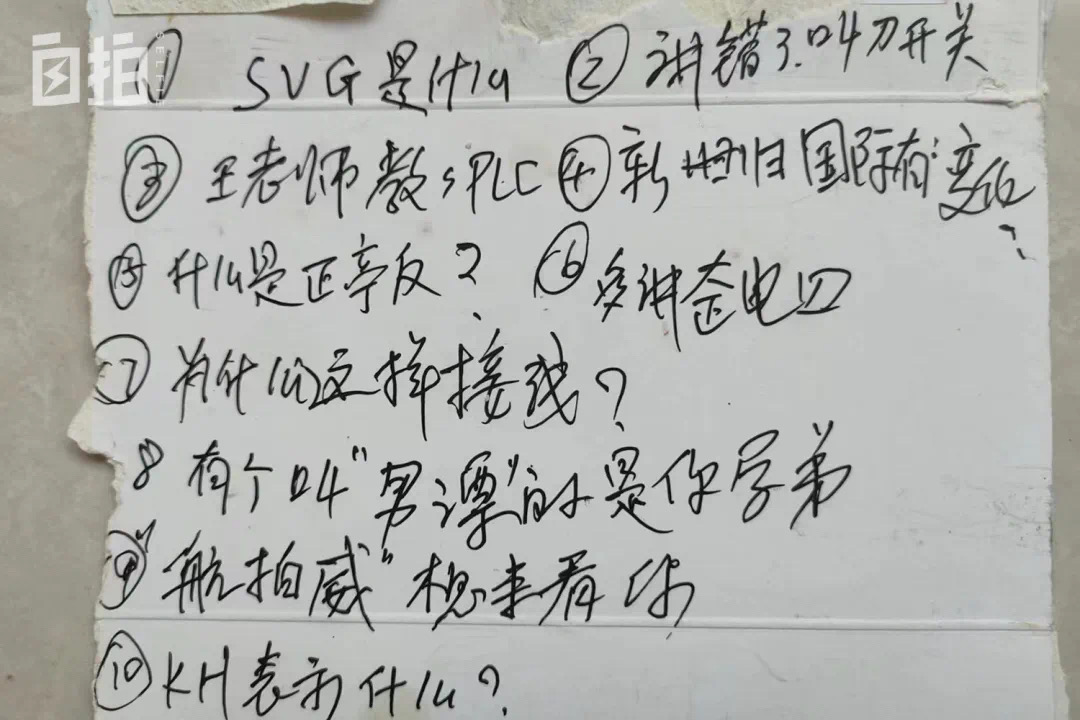 自拍
SELFIE
① SVG是什么 ② 讲错了.叫刀开关
③ 王老师教sPLC ④ 新 国际有变化
⑤ 什么是正停反？ ⑥ 多讲歪电
⑦ 为什么这样接线？
8 有个叫"男漂"的是你学弟
⑨ "航拍威"想来看你
⑩ KH表示什么？